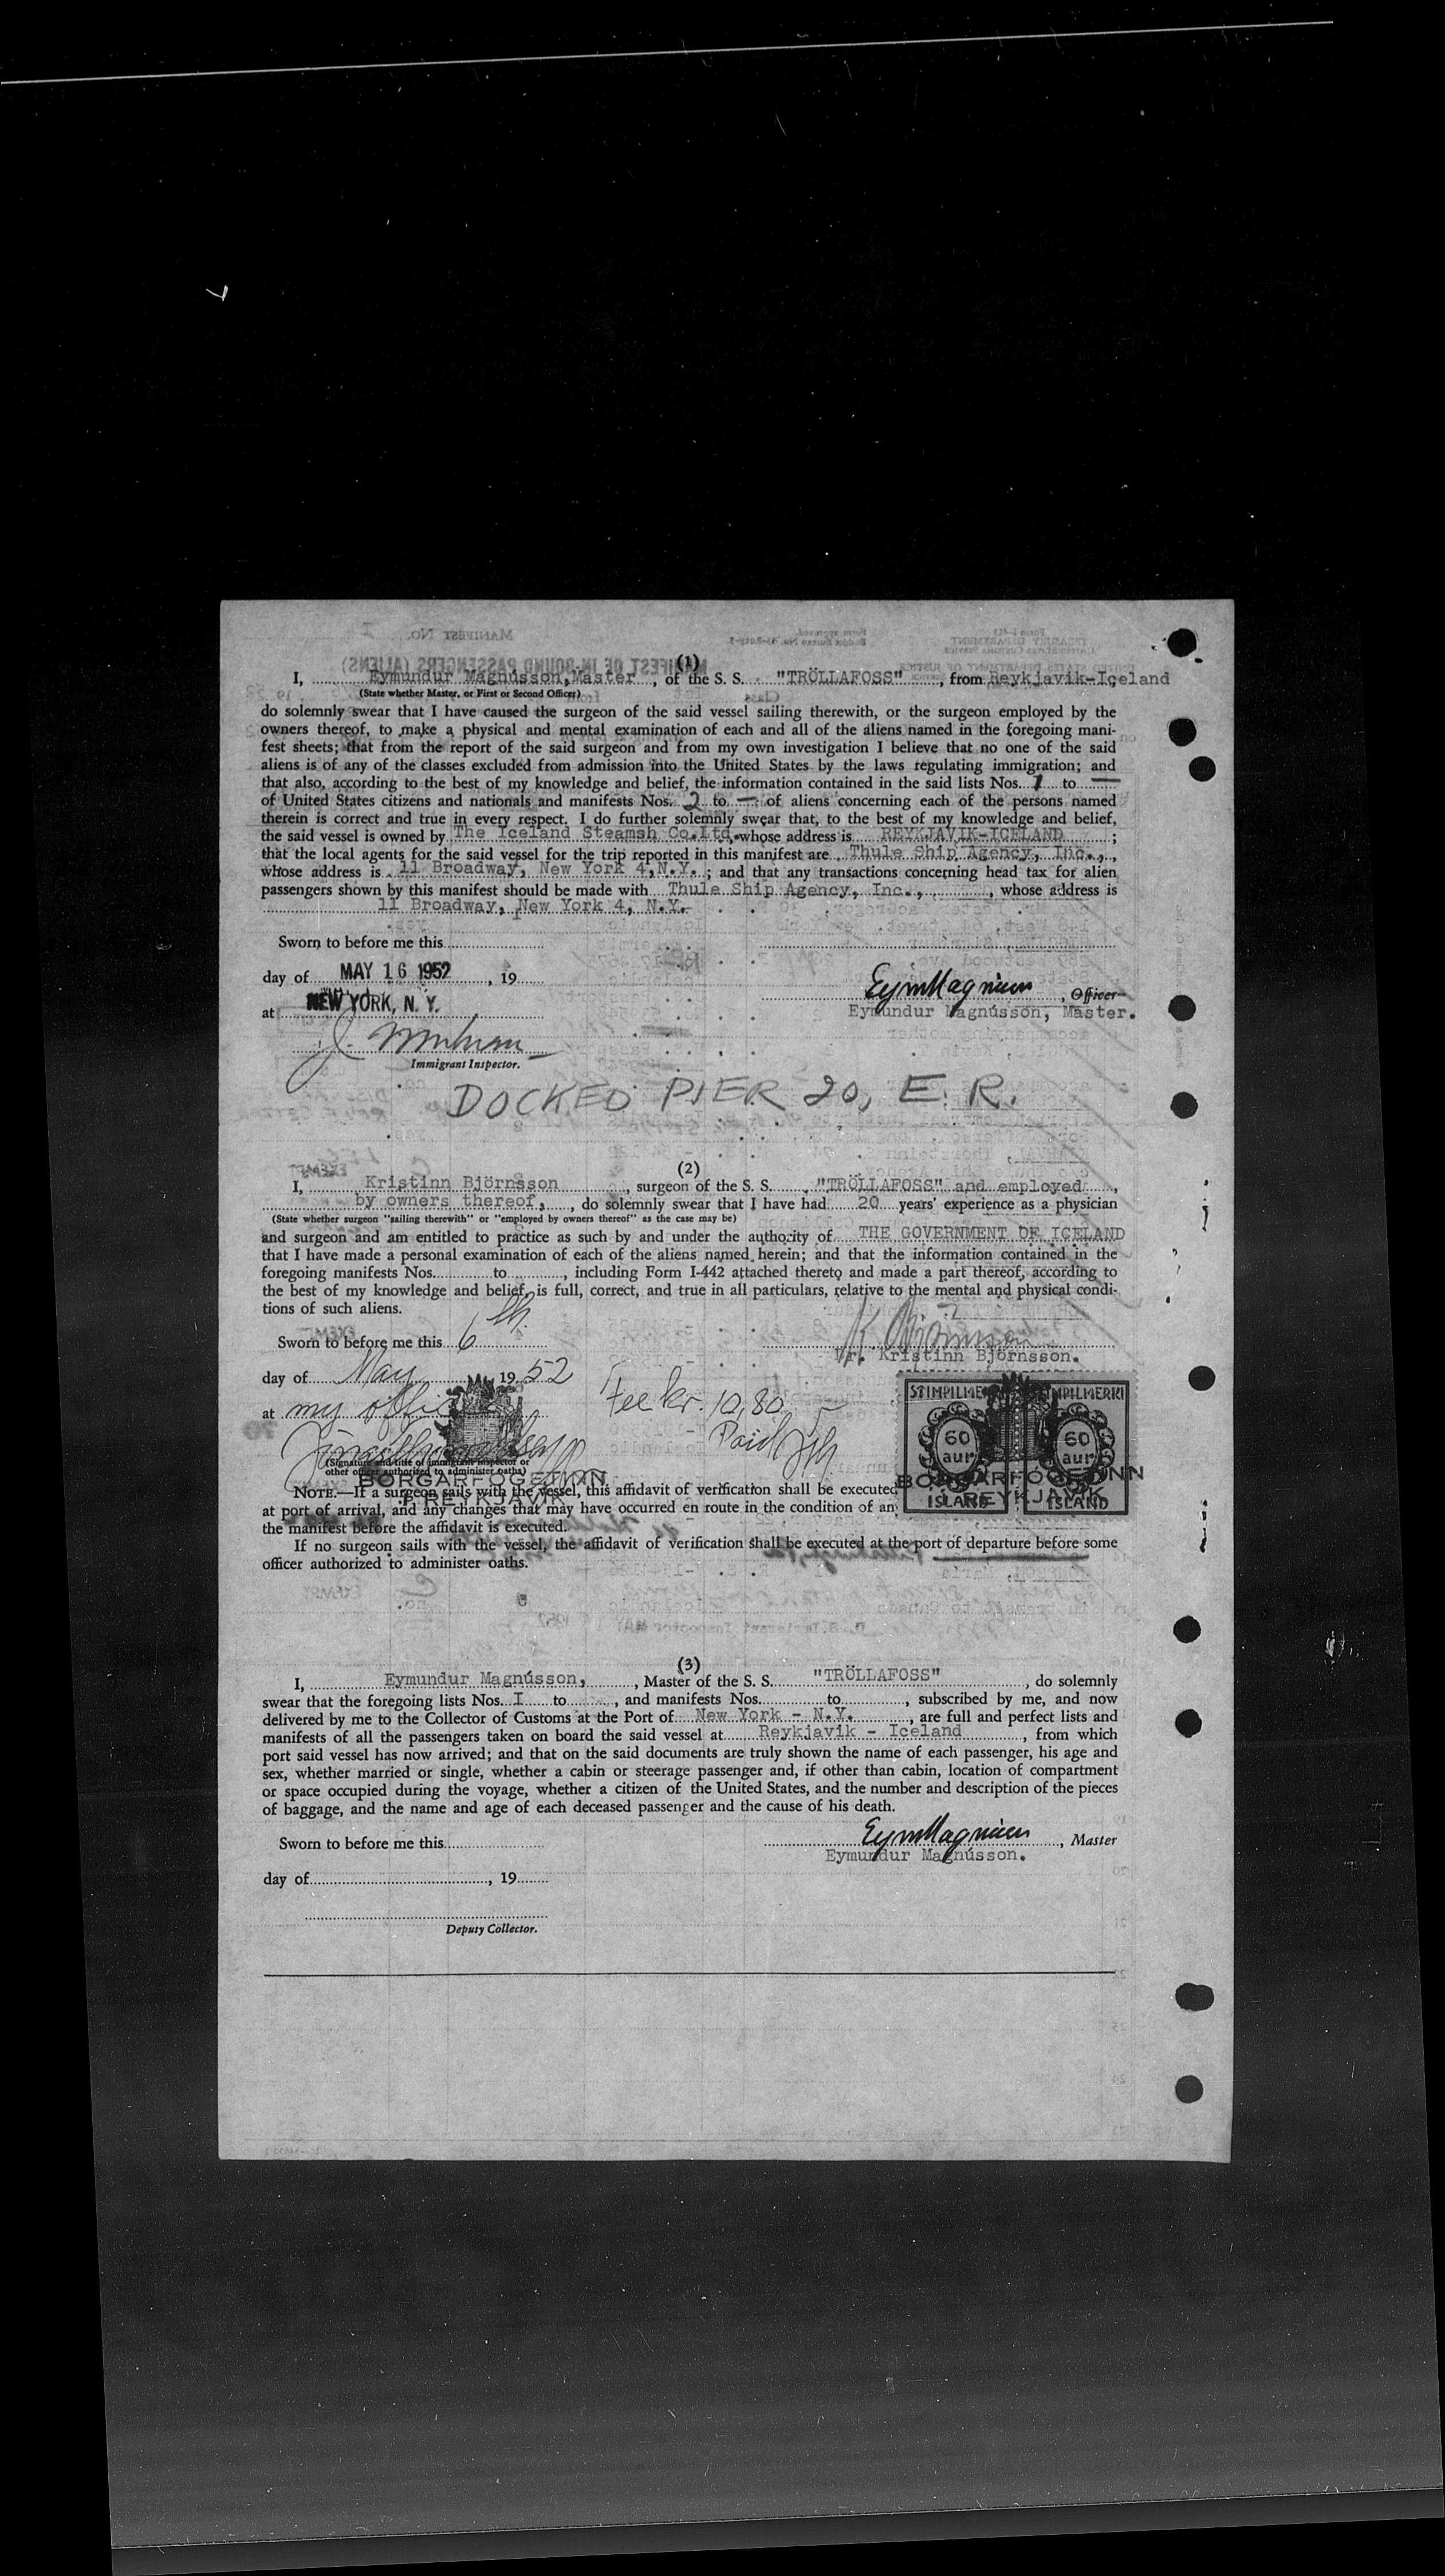 (1)
I, Eymundur Magnússon, Master, of the S. S. "TRÖLLAFOSS", from Reykjavik-Iceland
(State whether Master, or First or Second Officer)
do solemnly swear that I have caused the surgeon of the said vessel sailing therewith, or the surgeon employed by the
owners thereof, to make a physical and mental examination of each and all of the aliens named in the foregoing mani-
fest sheets; that from the report of the said surgeon and from my own investigation I believe that no one of the said
aliens is of any of the classes excluded from admission into the United States by the laws regulating immigration; and
that also, according to the best of my knowledge and belief, the information contained in the said lists Nos. 1 to —
of United States citizens and nationals and manifests Nos. 2 to — of aliens concerning each of the persons named
therein is correct and true in every respect. I do further solemnly swear that, to the best of my knowledge and belief,
the said vessel is owned by The Iceland Steamsh Co.Ltd. whose address is REYKJAVIK-ICELAND ;
that the local agents for the said vessel for the trip reported in this manifest are Thule Ship Agency, Inc.,
whose address is 11 Broadway, New York 4, N.Y. ; and that any transactions concerning head tax for alien
passengers shown by this manifest should be made with Thule Ship Agency, Inc., , whose address is
11 Broadway, New York 4, N.Y.
Sworn to before me this
day of MAY 16 1952, 19
EymMagnússon, Officer
at NEW YORK, N. Y.
Eymundur Magnússon, Master.
Immigrant Inspector.
DOCKED PIER 20, E. R.
(2)
I, Kristinn Björnsson, surgeon of the S. S. "TRÖLLAFOSS" and employed,
by owners thereof, , do solemnly swear that I have had 20 years' experience as a physician
(State whether surgeon "sailing therewith" or "employed by owners thereof" as the case may be)
and surgeon and am entitled to practice as such by and under the authority of THE GOVERNMENT OF ICELAND
that I have made a personal examination of each of the aliens named herein; and that the information contained in the
foregoing manifests Nos. to , including Form I-442 attached thereto and made a part thereof, according to
the best of my knowledge and belief, is full, correct, and true in all particulars, relative to the mental and physical condi-
tions of such aliens.
Sworn to before me this 6th
K. Björnsson
Dr. Kristinn Björnsson.
day of May 1952
at my office
Fee kr. 10,80
Paid
STIMPILMERKI STIMPILMERKI
60 60
aur aur
ISLAND ISLAND
(Signature and title of immigrant inspector or
other officer authorized to administer oaths)
BORGARFÓGETINN
Í REYKJAVÍK
BORGARFÓGETINN
Í REYKJAVÍK
NOTE.—If a surgeon sails with the vessel, this affidavit of verification shall be executed
at port of arrival, and any changes that may have occurred en route in the condition of an
the manifest before the affidavit is executed.
If no surgeon sails with the vessel, the affidavit of verification shall be executed at the port of departure before some
officer authorized to administer oaths.
(3)
I, Eymundur Magnússon, , Master of the S. S. "TRÖLLAFOSS" , do solemnly
swear that the foregoing lists Nos. I to , and manifests Nos. to , subscribed by me, and now
delivered by me to the Collector of Customs at the Port of New York - N.Y. , are full and perfect lists and
manifests of all the passengers taken on board the said vessel at Reykjavik - Iceland , from which
port said vessel has now arrived; and that on the said documents are truly shown the name of each passenger, his age and
sex, whether married or single, whether a cabin or steerage passenger and, if other than cabin, location of compartment
or space occupied during the voyage, whether a citizen of the United States, and the number and description of the pieces
of baggage, and the name and age of each deceased passenger and the cause of his death.
Sworn to before me this
EymMagnússon, Master
Eymundur Magnússon.
day of , 19
Deputy Collector.